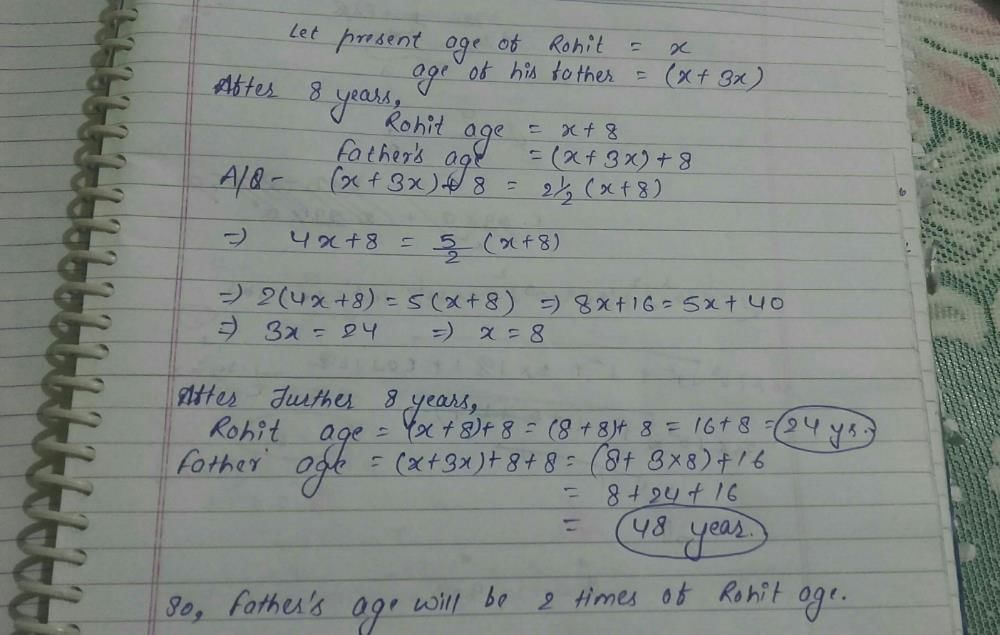 Let present age of Rohit = x
age of his father = (x+3x)
After 8 years,
Rohit age = x+8
Father's age = (x+3x)+8
A/Q- (x+3x)+8 = 2 1/2 (x+8)
=) 4x+8 = 5/2 (x+8)
=) 2(4x+8) = 5(x+8) =) 8x+16=5x+40
=) 3x = 24 =) x=8
After further 8 years,
Rohit age = (x+8)+8 = (8+8)+8 = 16+8 = 24 yr.
Father age = (x+3x)+8+8 = (8+3×8)+16
= 8+24+16
= 48 year.
So, Father's age will be 2 times of Rohit age.